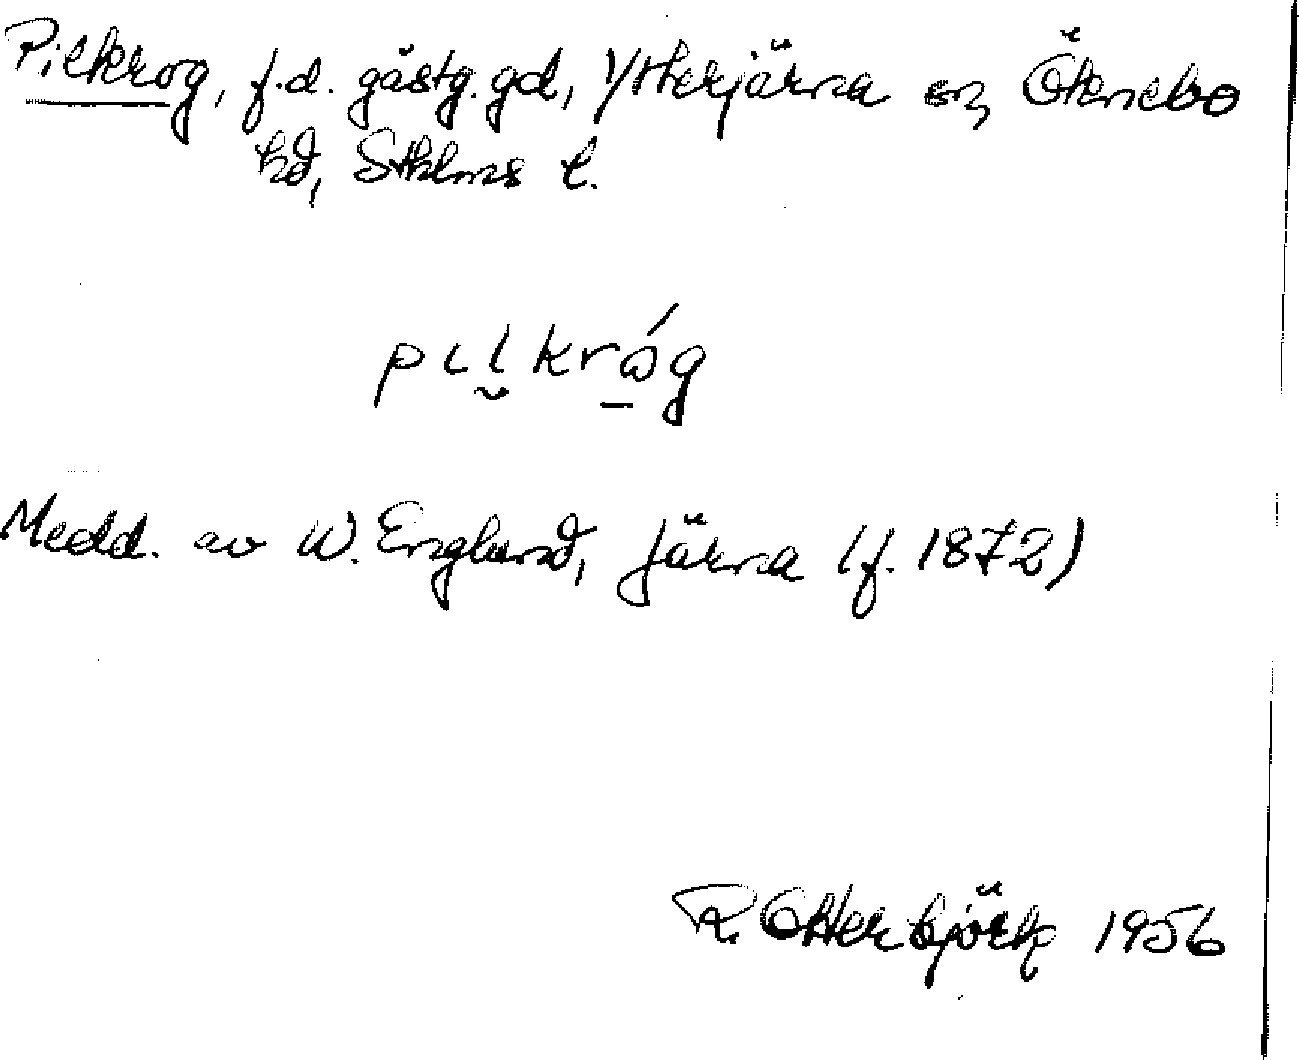 Pilkrog, f.d. gästg.gd, Ytterjärna sn, Öknebo
hd, Sthlms l.
pɩl̬krǫ́g
Medd. av W. Englund, Järna (f. 1872)
R. Otterbjörk 1956